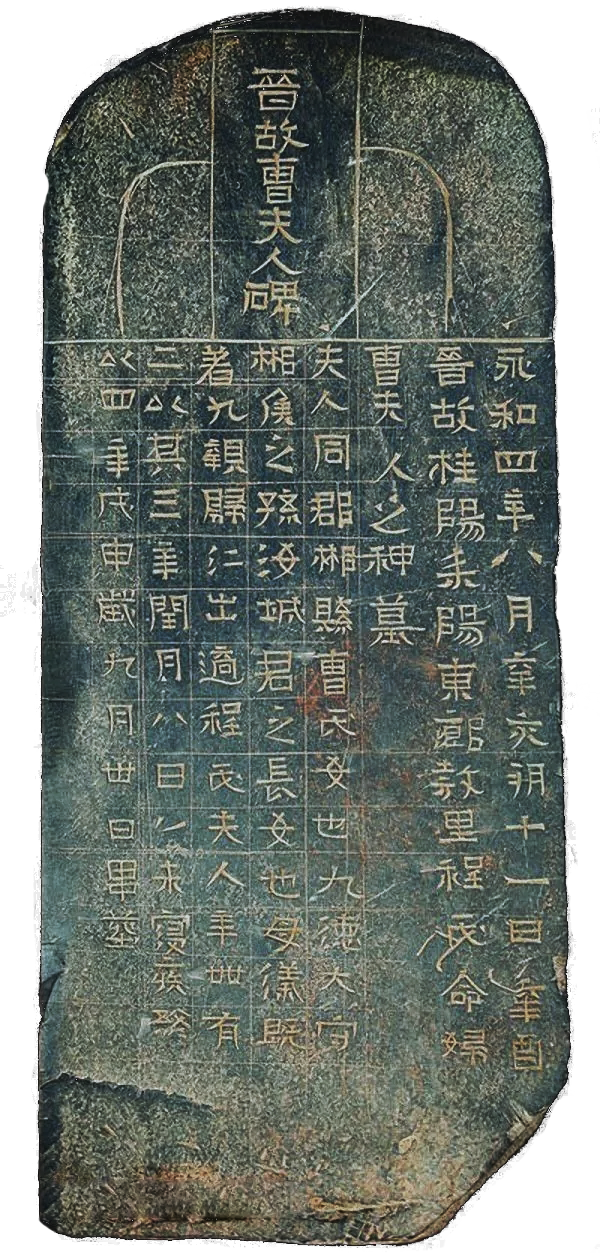 晉故曹夫人碑
永和四年八月辛亥朔十一日辛酉
晉故桂陽耒陽東鄉敦里程氏命婦
曹夫人之神墓
夫人同郡郴縣曹氏女也九德大守
郴侯之孫汝城君之長女也母儀既
著九親歸仁出適程氏夫人年卌有
二以其三年閏月八日以來寢疾
以四年戊申歲九月廿日畢葬